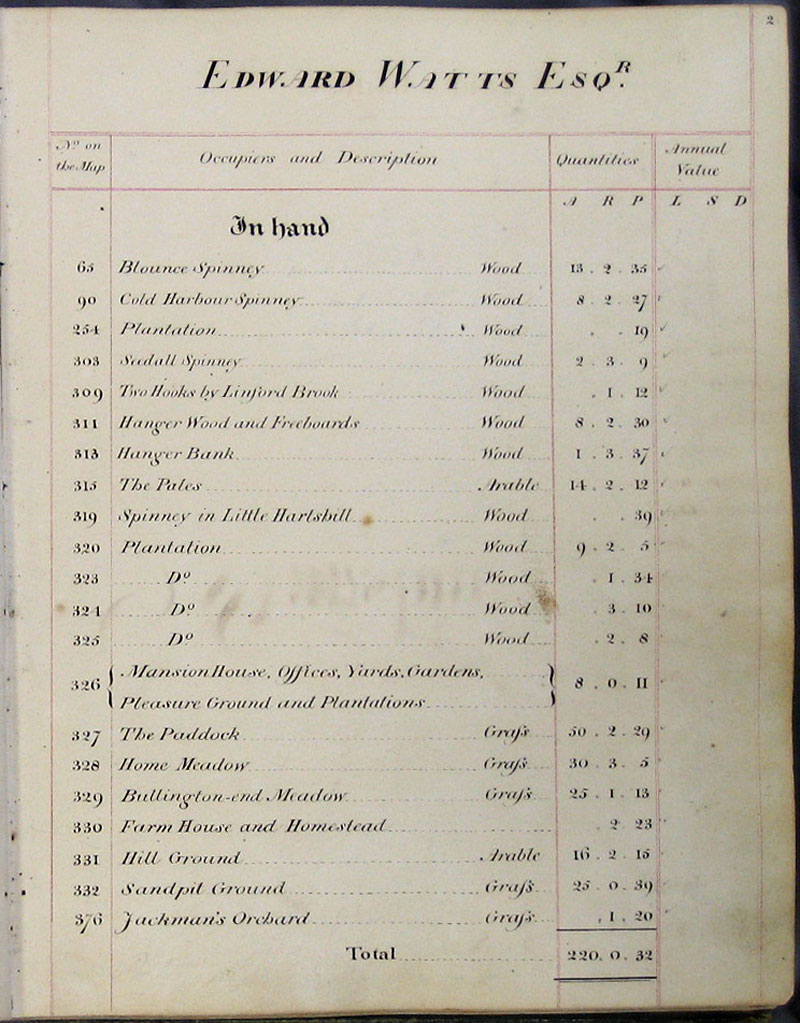 2
Edward Watts Esqr.
No. on the Map Occupiers and Description Quantities Annual Value
A R P L S D
In hand
65 Blounce Spinney Wood 13 . 2 . 35
90 Cold Harbour Spinney Wood 8 . 2 . 27
254 Plantation Wood . . 19
303 Seedall Spinney Wood 2 . 3 . 9
309 Two Hooks by Linford Brook Wood . 1 . 12
311 Hanger Wood and Freeboards Wood 8 . 2 . 30
313 Hanger Bank Wood 1 . 3 . 37
315 The Pales Arable 14 . 2 . 12
319 Spinney in Little Hartshill Wood . . 39
320 Plantation Wood 9 . 2 . 5
323 Do Wood . 1 . 34
324 Do Wood . 3 . 10
325 Do Wood . 2 . 8
326 { Mansion House, Offices, Yards, Gardens,
Pleasure Ground and Plantations } 8 . 0 . 11
327 The Paddock Grass 50 . 2 . 29
328 Home Meadow Grass 30 . 3 . 5
329 Bullington-end Meadow Grass 25 . 1 . 13
330 Farm House and Homestead 2 23
331 Hill Ground Arable 16 . 2 . 15
332 Sandpit Ground Grass 25 . 0 . 39
376 Jackman's Orchard Grass . 1 . 20
Total 220. 0. 32